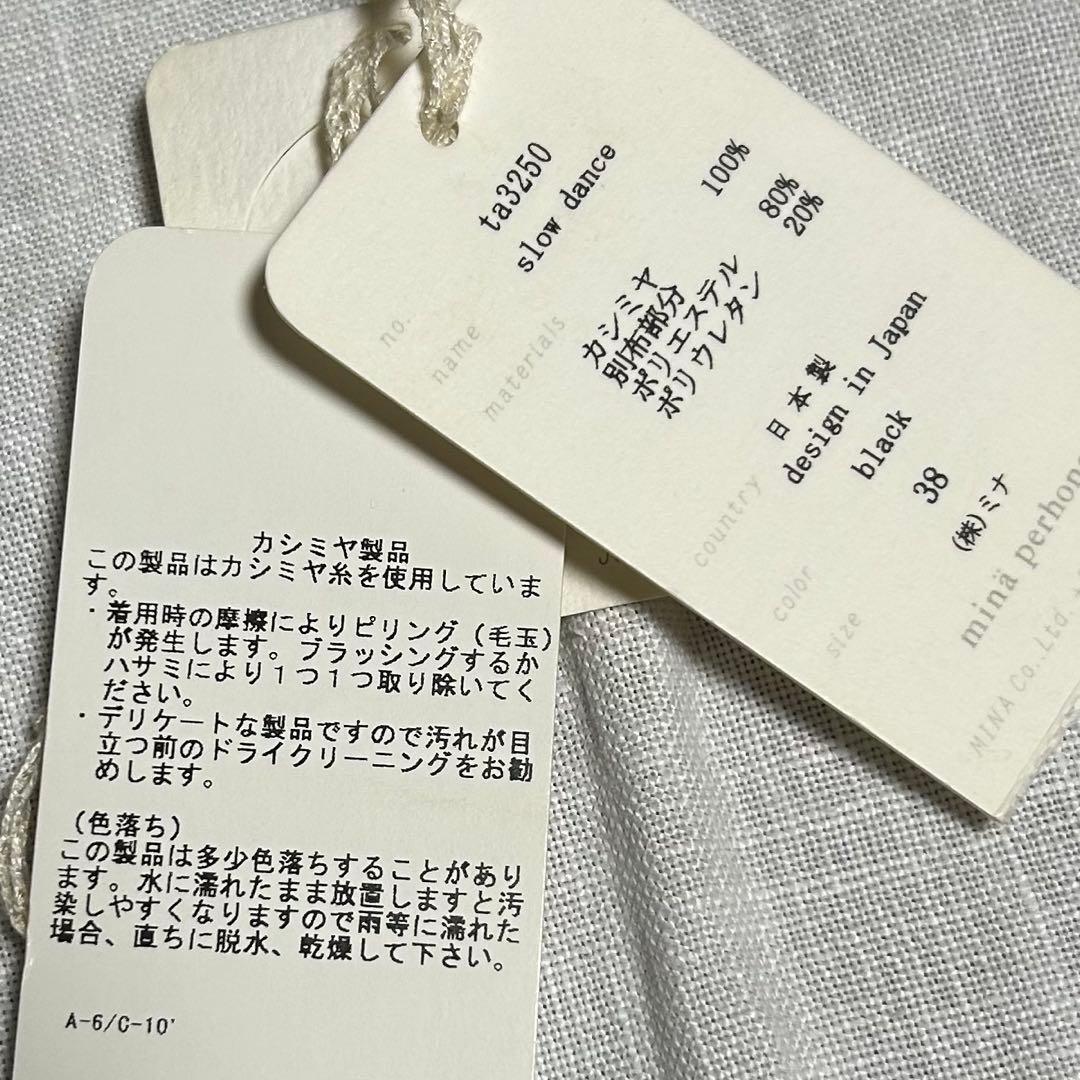 no. ta3250
name slow dance
materials カシミヤ 100%
別布部分
ポリエステル 80%
ポリウレタン 20%
country 日本製
design in Japan
color black
size 38
(株)ミナ
minä perhon
MINA Co., Ltd.
カシミヤ製品
この製品はカシミヤ糸を使用していま
す。
・着用時の摩擦によりピリング(毛玉)
が発生します。ブラッシングするか
ハサミにより1つ1つ取り除いてく
ださい。
・デリケートな製品ですので汚れが目
立つ前のドライクリーニングをお勧
めします。
(色落ち)
この製品は多少色落ちすることがあり
ます。水に濡れたまま放置しますと汚
染しやすくなりますので雨等に濡れた
場合、直ちに脱水、乾燥して下さい。
A-6/C-10'